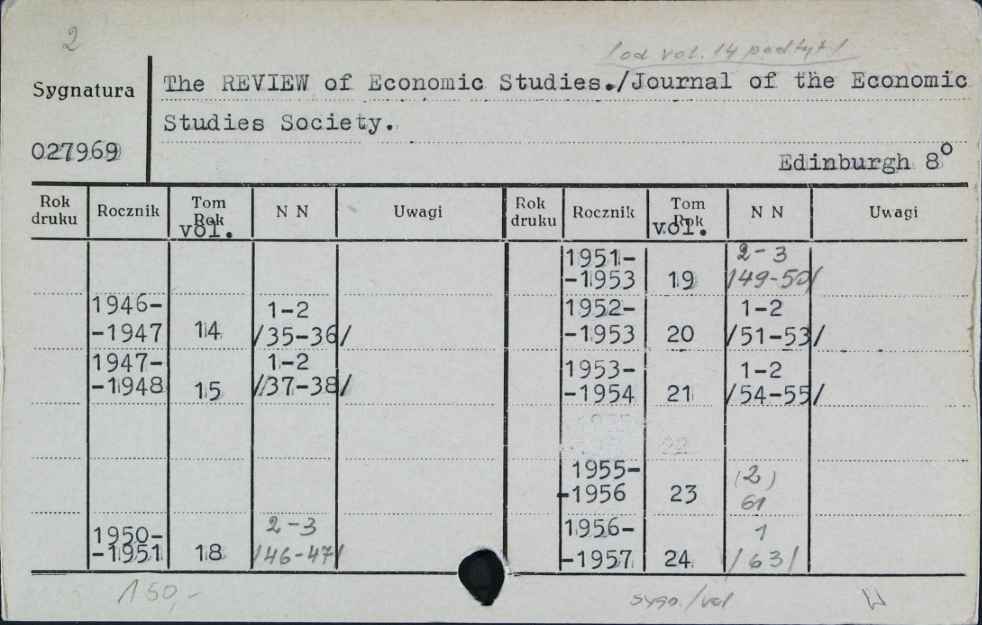 2
/od vol. 14 podtyt/
Sygnatura
The REVIEW of Economic Studies./Journal of the Economic
Studies Society.
027969
Edinburgh 8°
Rok druku Rocznik Tom Rok vol. N N Uwagi Rok druku Rocznik Tom Rok vol. N N Uwagi
1951- 2-3
-1953 19 /49-50/
1946- 1-2 1952- 1-2
-1947 14 /35-36/ -1953 20 /51-53/
1947- 1-2 1953- 1-2
-1948 15 /37-38/ -1954 21 /54-55/
22
1955- (2)
-1956 23 61
1950- 2-3 1956- 1
-1951 18 /46-47/ -1957 24 /63/
150,-
sygn./vol
W